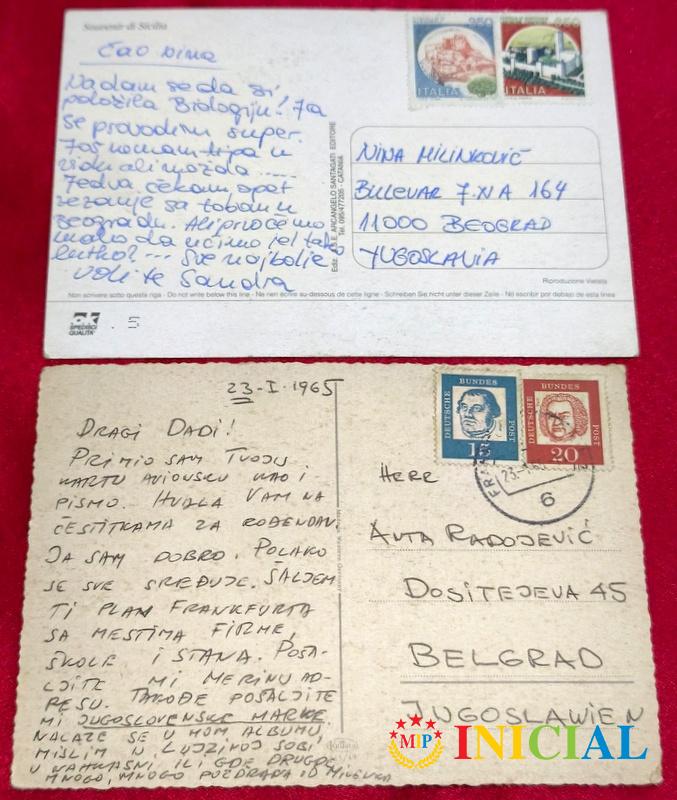 Souvenir di Sicilia
250
ITALIA
ITALIA
ĆAO NINA
Nadam se da si
položila Biologiju! Ja
se provodim super.
vidu ali možda .....
Jedva čekam opet
zezanje sa tobom u
Beogradu. Ali prvo ćemo
malo da učimo jel tak
lutko?... Sve najbolje
voli te Sandra
NINA MILINKOVIĆ
BULEVAR 7.NA 164
11000 BEOGRAD
YUGOSLAVIA
Ediz. ARCANGELO SANTAGATI EDITORE
Tel. 095/477205 - CATANIA
Riproduzione Vietata
Non scrivere sotto questa riga - Do not write below this line - Ne rien écrire au-dessous de cette ligne - Schreiben Sie nicht unter dieser Zeile - No escribir por debajo de esta linea
SPEDISCI
QUALITA'
23-I-1965
DEUTSCHE BUNDES POST
15
DEUTSCHE BUNDES POST
20
6
DRAGI DADI!
PRIMIO SAM TVOJU
KARTU AVIONSKU KAO I
PISMO. HVALA VAM NA
ČESTITKAMA ZA ROĐENDAN
JA SAM DOBRO. POLAKO
SE SVE SREĐUJE. ŠALJEM
TI PLAN FRANKFURTA
SA MESTIMA FIRME,
ŠKOLE I STANA. POŠA-
LJITE MI MERINU AD-
RESU. TAKOĐE POŠALJITE
MI JUGOSLOVENSKE MARKE.
NALAZE SE U MOM ALBUMU,
MISLIM U LUJZINOJ SOBI
U NAHKASNI, ILI GDE DRUGDE
MNOGO, MNOGO POZDRAVA OD MILENKA
HERR
AVTA RADOJEVIĆ
DOSITEJEVA 45
BELGRAD
JUGOSLAWIEN
MIP INICIAL